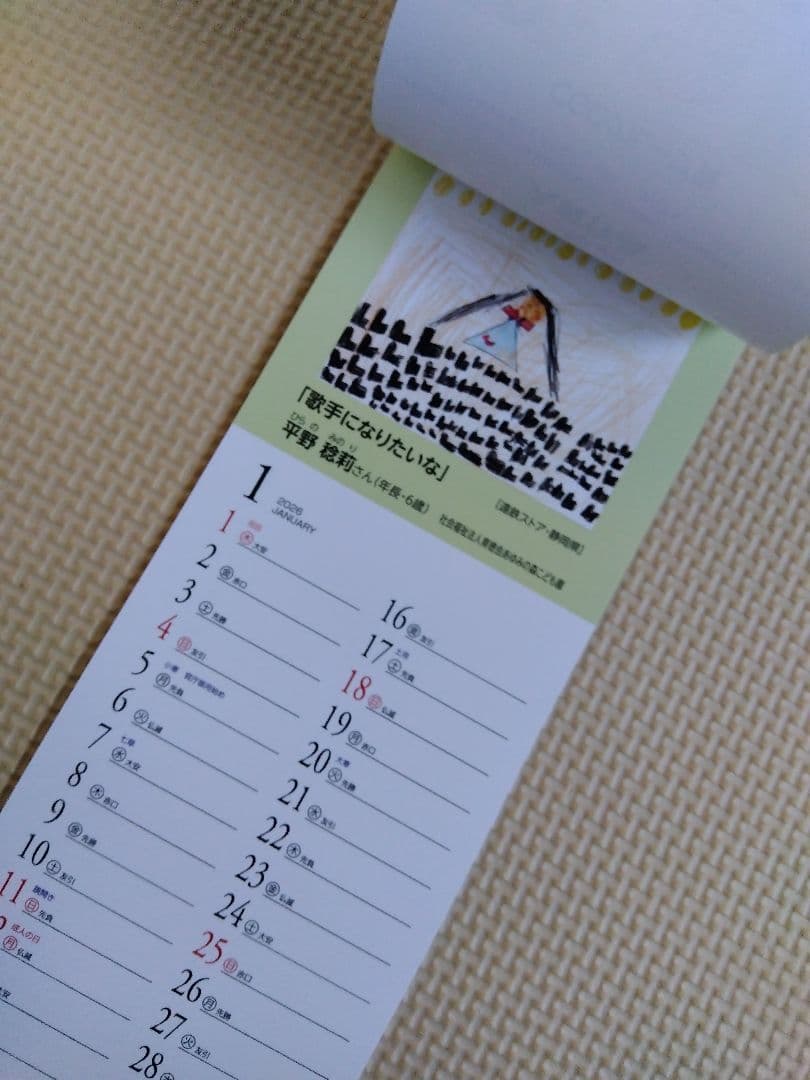 「歌手になりたいな」
ひらの みのり
平野 稔莉さん(年長・6歳)
[遠鉄ストア・静岡県]
1 2026
JANUARY
1 ㊍ 大安
2 ㊎ 赤口
3 ㊏ 先勝
4 ㊐ 友引
5 ㊊ 小寒 官庁御用始め 先負
6 ㊋ 仏滅
7 ㊌ 七草 大安
8 ㊍ 赤口
9 ㊎ 先勝
10 ㊏ 友引
11 ㊐ 鏡開き 先負
㊊ 成人の日 仏滅
大安
16 ㊎ 友引
17 ㊏ 土用 先負
18 ㊐ 仏滅
19 ㊊ 赤口
20 ㊋ 大寒 先勝
21 ㊌ 友引
22 ㊍ 先負
23 ㊎ 仏滅
24 ㊏ 大安
25 ㊐ 赤口
26 ㊊ 先勝
27 ㊋ 友引
28